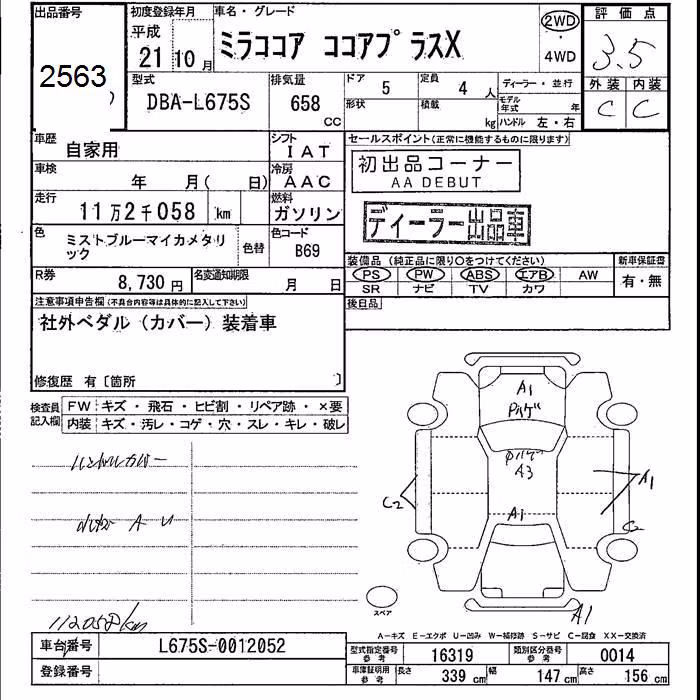 出品番号
2563
初度登録年月
平成
21 10 月
車名・グレード
ミラココア ココアプラスX
2WD
・
4WD
評価点
3.5
型式
DBA-L675S
排気量
658
CC
ドア 5 定員 4 人
形状 積載 kg
ディーラー・並行
モデル年式 年
ハンドル 左・右
外装 内装
C C
車歴
自家用
シフト
IAT
車検
年 月( 日)
冷房
AAC
走行
11万2千058 km
燃料
ガソリン
色
ミストブルーマイカメタリ
ック
色替
色コード
B69
R券
8,730 円
名変通知期限
月 日
セールスポイント(正常に機能するものに限ります)
初出品コーナー
AA DEBUT
ディーラー出品車
装備品(純正品に限り○をつけてください)
PS PW ABS エアB AW
SR ナビ TV カワ
新車保証書
有・無
後日品
注意事項申告欄(不具合内容等は具体的に記入して下さい)
社外ペダル(カバー)装着車
修復歴 有〔箇所 〕
検査員
記入欄
FW キズ・飛石・ヒビ割・リペア跡・×要
内装 キズ・汚レ・コゲ・穴・スレ・キレ・破レ
ハンドルカバー
A U
112058km
A1
A3
A1
C2
A1
C2
A1
スペア
A-キズ E-エクボ U-凹み W-補修跡 S-サビ C-腐食 XX-交換済
車台番号 L675S-0012052
登録番号
型式指定番号 参考 16319 類別区分番号 参考 0014
車庫証明用 参考 長さ 339 cm 幅 147 cm 高さ 156 cm